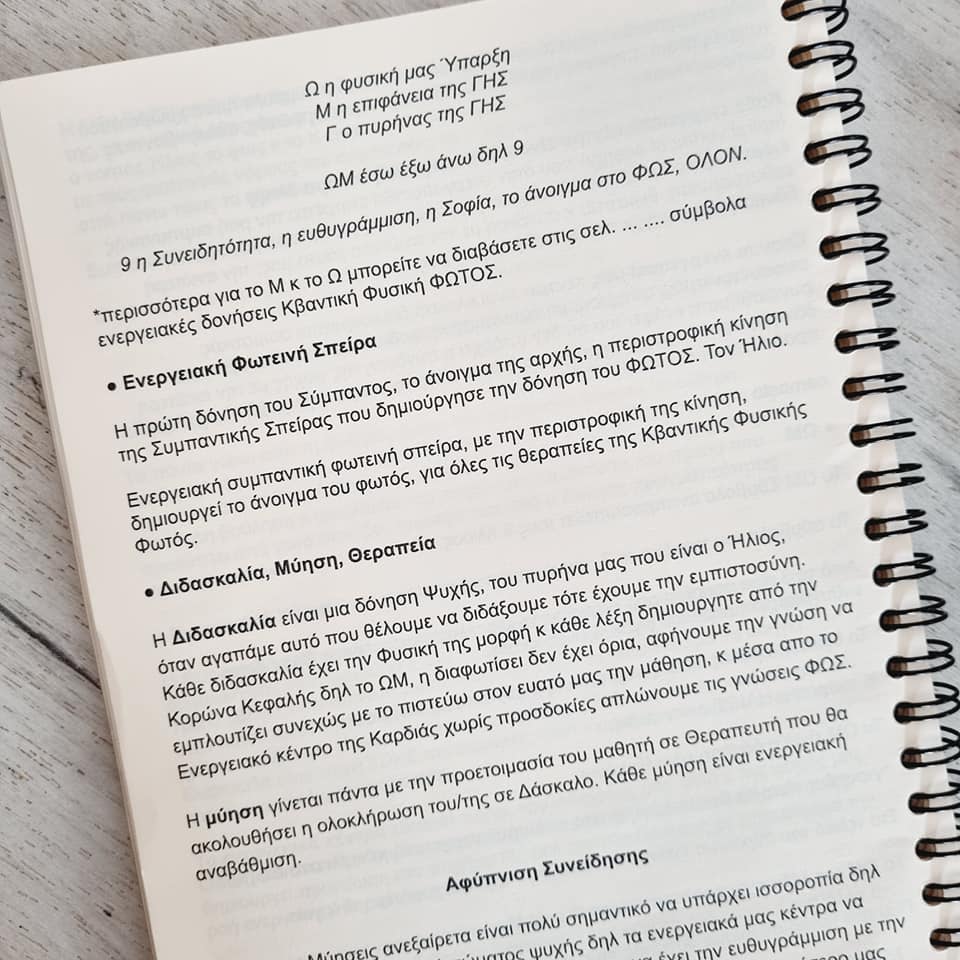 Ω η φυσική μας Ύπαρξη
Μ η επιφάνεια της ΓΗΣ
Γ ο πυρήνας της ΓΗΣ
ΩΜ έσω έξω άνω δηλ 9
9 η Συνειδητότητα, η ευθυγράμμιση, η Σοφία, το άνοιγμα στο ΦΩΣ, ΟΛΟΝ.
*περισσότερα για το Μ κ το Ω μπορείτε να διαβάσετε στις σελ. ... .... σύμβολα
ενεργειακές δονήσεις Κβαντική Φυσική ΦΩΤΟΣ.
● Ενεργειακή Φωτεινή Σπείρα
Η πρώτη δόνηση του Σύμπαντος, το άνοιγμα της αρχής, η περιστροφική κίνηση
της Συμπαντικής Σπείρας που δημιούργησε την δόνηση του ΦΩΤΟΣ. Τον Ήλιο.
Ενεργειακή συμπαντική φωτεινή σπείρα, με την περιστροφική της κίνηση,
δημιουργεί το άνοιγμα του φωτός, για όλες τις θεραπείες της Κβαντικής Φυσικής
Φωτός.
● Διδασκαλία, Μύηση, Θεραπεία
Η Διδασκαλία είναι μια δόνηση Ψυχής, του πυρήνα μας που είναι ο Ήλιος,
όταν αγαπάμε αυτό που θέλουμε να διδάξουμε τότε έχουμε την εμπιστοσύνη.
Κάθε διδασκαλία έχει την Φυσική της μορφή κ κάθε λέξη δημιουργητε από την
Κορώνα Κεφαλής δηλ το ΩΜ, η διαφωτίσει δεν έχει όρια, αφήνουμε την γνώση να
εμπλουτίζει συνεχώς με το πιστεύω στον ευατό μας την μάθηση, κ μέσα απο το
Ενεργειακό κέντρο της Καρδιάς χωρίς προσδοκίες απλώνουμε τις γνώσεις ΦΩΣ.
Η μύηση γίνεται πάντα με την προετοιμασία του μαθητή σε Θεραπευτή που θα
ακολουθήσει η ολοκλήρωση του/της σε Δάσκαλο. Κάθε μύηση είναι ενεργειακή
αναβάθμιση.
Αφύπνιση Συνείδησης
Μύησεις ανεξαίρετα είναι πολύ σημαντικό να υπάρχει ισσοροπία δηλ
ψυχής δηλ τα ενεργειακά μας κέντρα να
έχει την ευθυγράμμιση με την
μας